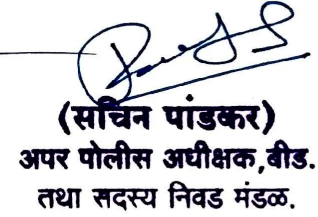 (सचिन पांडकर)
अपर पोलीस अधीक्षक,बीड.
तथा सदस्य निवड मंडळ.